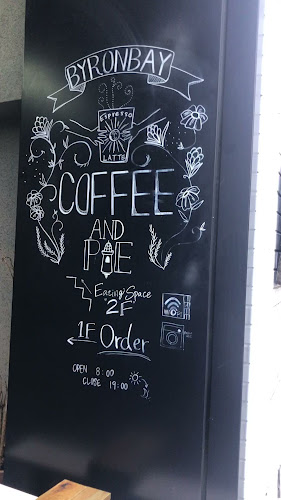 BYRONBAY
Espresso
LATTE
COFFEE
AND
PIE
Eating Space
2F
1F Order
OPEN 8:00
CLOSE 19:00